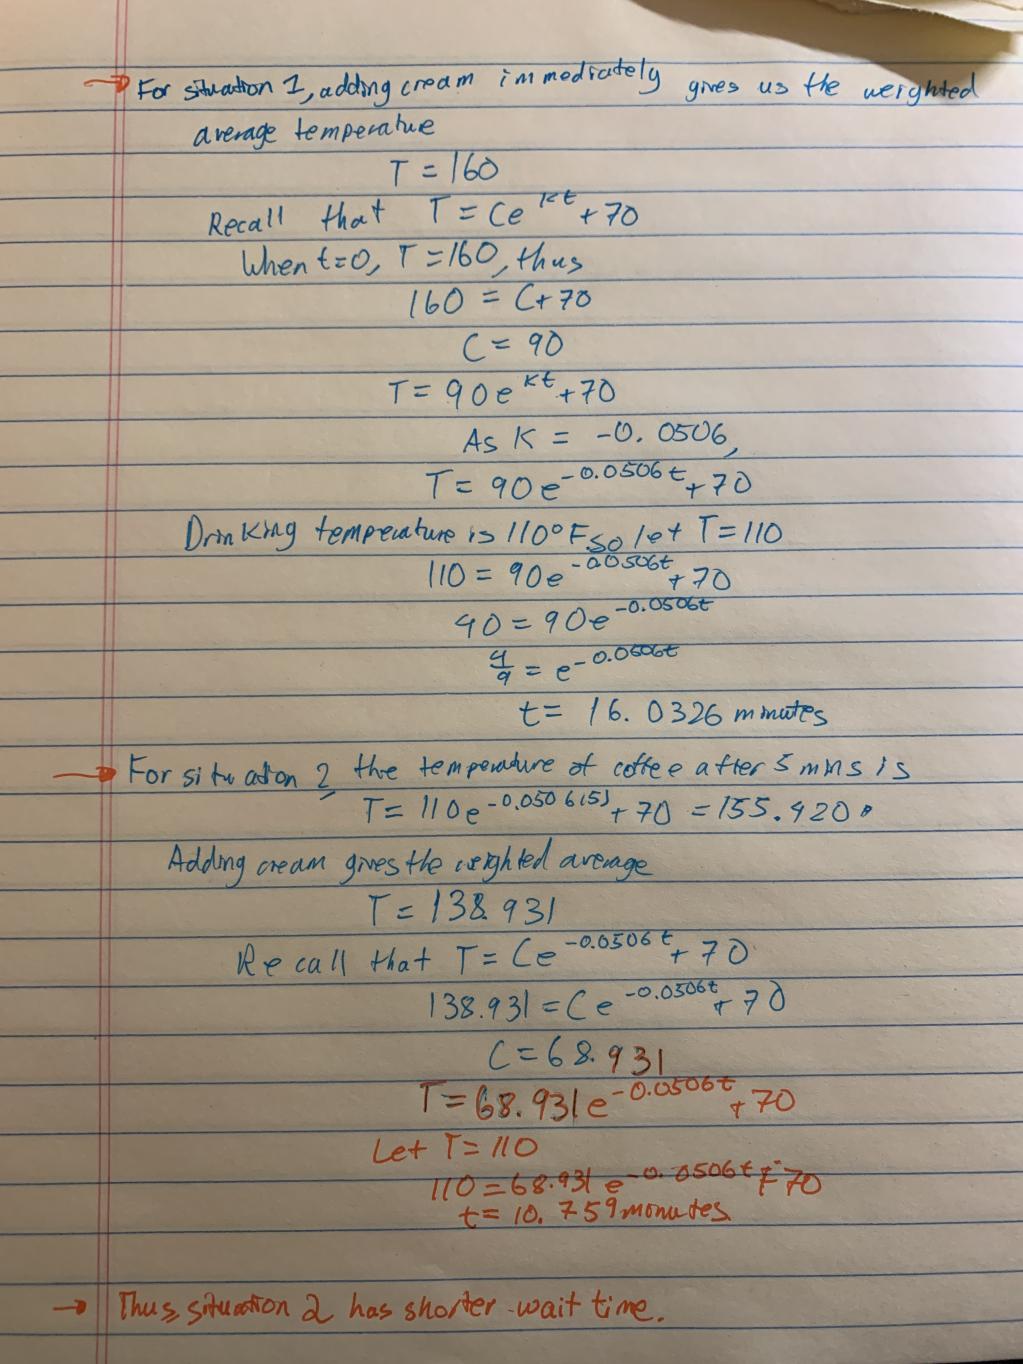 → For situation 1, adding cream immediately gives us the weighted
average temperature
T = 160
Recall that T = Ce^kt + 70
When t=0, T = 160, thus
160 = C + 70
C = 90
T = 90e^kt + 70
As K = -0.0506,
T = 90e^-0.0506t + 70
Drinking temperature is 110°F so let T = 110
110 = 90e^-0.0506t + 70
40 = 90e^-0.0506t
4/9 = e^-0.0506t
t = 16.0326 minutes
→ For situation 2, the temperature of coffee after 5 mins is
T = 110e^-0.0506(5) + 70 = 155.420°
Adding cream gives the weighted average
T = 138.931
Recall that T = Ce^-0.0506t + 70
138.931 = Ce^-0.0506t + 70
C = 68.931
T = 68.931e^-0.0506t + 70
Let T = 110
110 = 68.931 e^-0.0506t + 70
t = 10.759 monutes
→ Thus, situation 2 has shorter wait time.